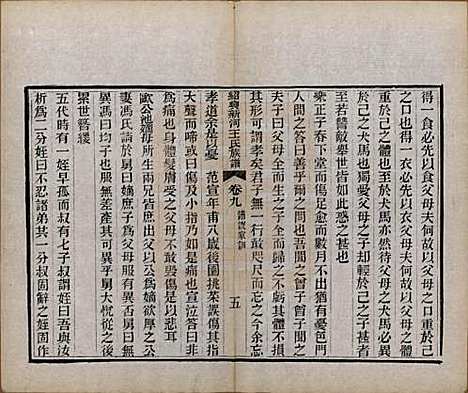 得一食必先以食父母夫何故以父母之口重於己
之口也得一衣必先以衣父母夫何故以父母之體
重於己之體也至於犬馬亦然待父母之犬馬必異
於己之犬馬也獨愛父母之子却輕於己之子甚者
至若讐敵舉世皆如此惑之甚也
樂正子春下堂而傷其足數月不出猶有憂色門
人問之答曰善乎爾之問也吾聞之曾子曾子聞之
夫子曰父母全而生之子全而歸之不虧其體不損
其形可謂孝矣君子無一行敢忘父母吾今忘
孝道矣是以憂 范宣年甫八歲後園挑菜誤傷其指
大啼或問曰傷及小指乃如大痛而至哀泣答曰非
為痛也身體髮膚受之父母不敢毀傷是以啼耳
歐公池適母所生兩兄皆庶出父以公為嫡欲厚之公
妻馮氏請於舅姑曰子婦為父母服有差等乎舅
姑曰均子也何服無差產其可異乎舅大悅從之後
累世簪纓
五代時有一姪早孤而叔有七子叔謂姪曰吾與汝
析為二分姪曰不忍諸弟其一分叔固辭之姪固作
紹興新河王氏族譜 卷九 譜説家訓 五